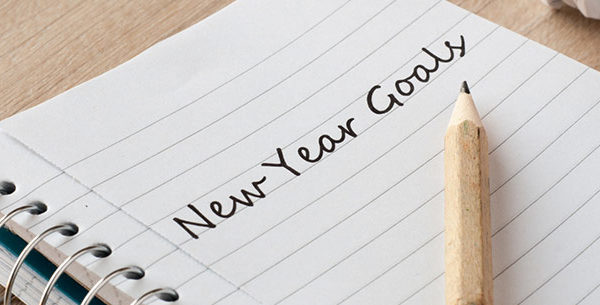 New Year Goals